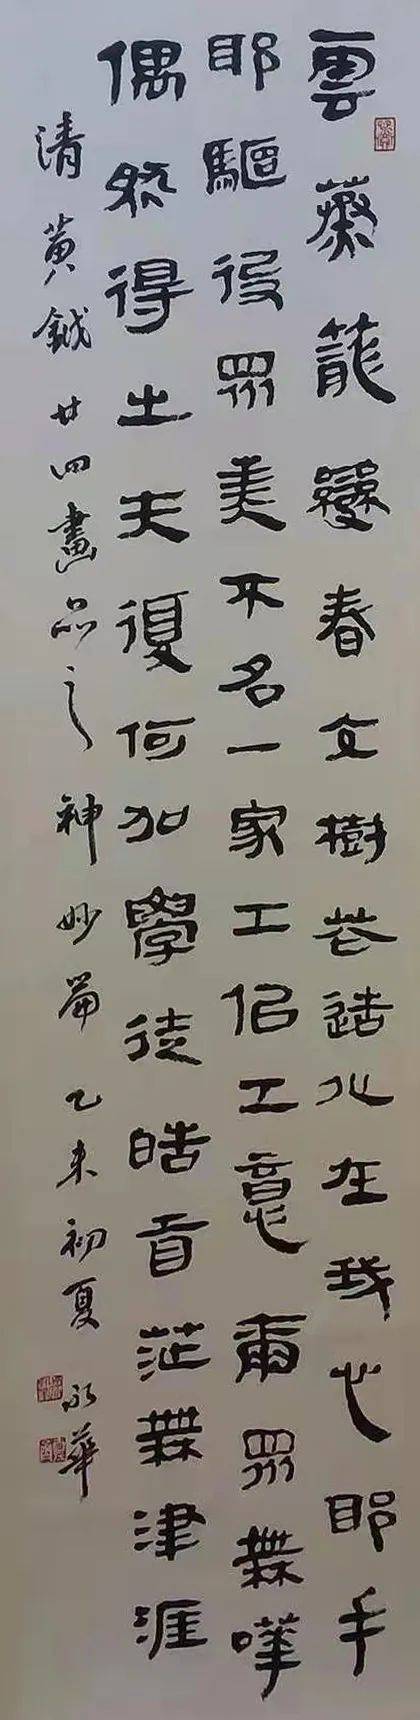 雲蒸龍變春交樹花造化在我心耶手
耶驅役眾美不名一家工佀工意爾眾無嘩
偶然得之夫復何加學徒皓首茫無津涯
清黄鉞廿四畫品之神妙篇乙未初夏永華